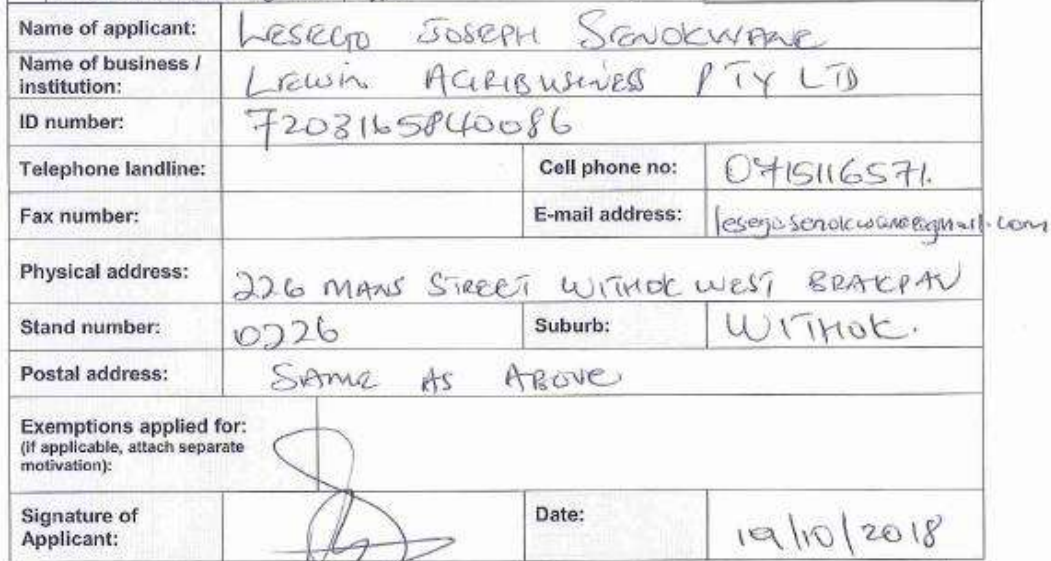 Name of applicant: LESEGO JOSEPH SENOKWANE
Name of business / institution: Lewin AGRIBUSINESS PTY LTD
ID number: 7203165840086
Telephone landline: Cell phone no: 0715116571.
Fax number: E-mail address: lesegosenokwane@gmail.com
Physical address: 226 MANS STREET WITHOK WEST BRAKPAN
Stand number: 0226 Suburb: WITHOK.
Postal address: SAME AS ABOVE
Exemptions applied for:
(if applicable, attach separate
motivation):
Signature of
Applicant: Date: 19/10/2018